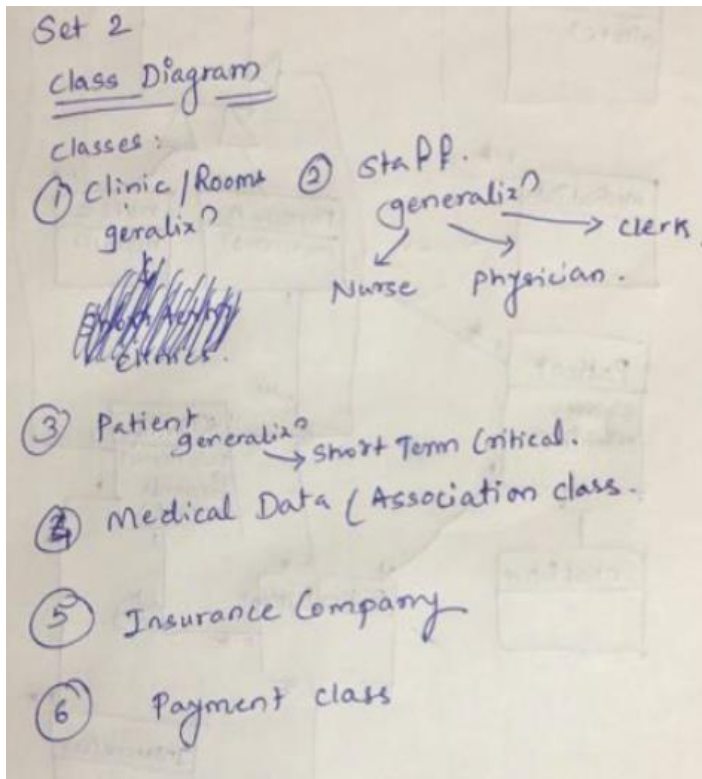 Set 2
Class Diagram
Classes:
① Clinic/Rooms
geralixn
Clinics.
② Staff.
generalixn
Nurse
Physician.
Clerk
③ Patient
generalixn
Short Term Critical.
④ Medical Data (Association class.
⑤ Insurance Company
⑥ Payment class